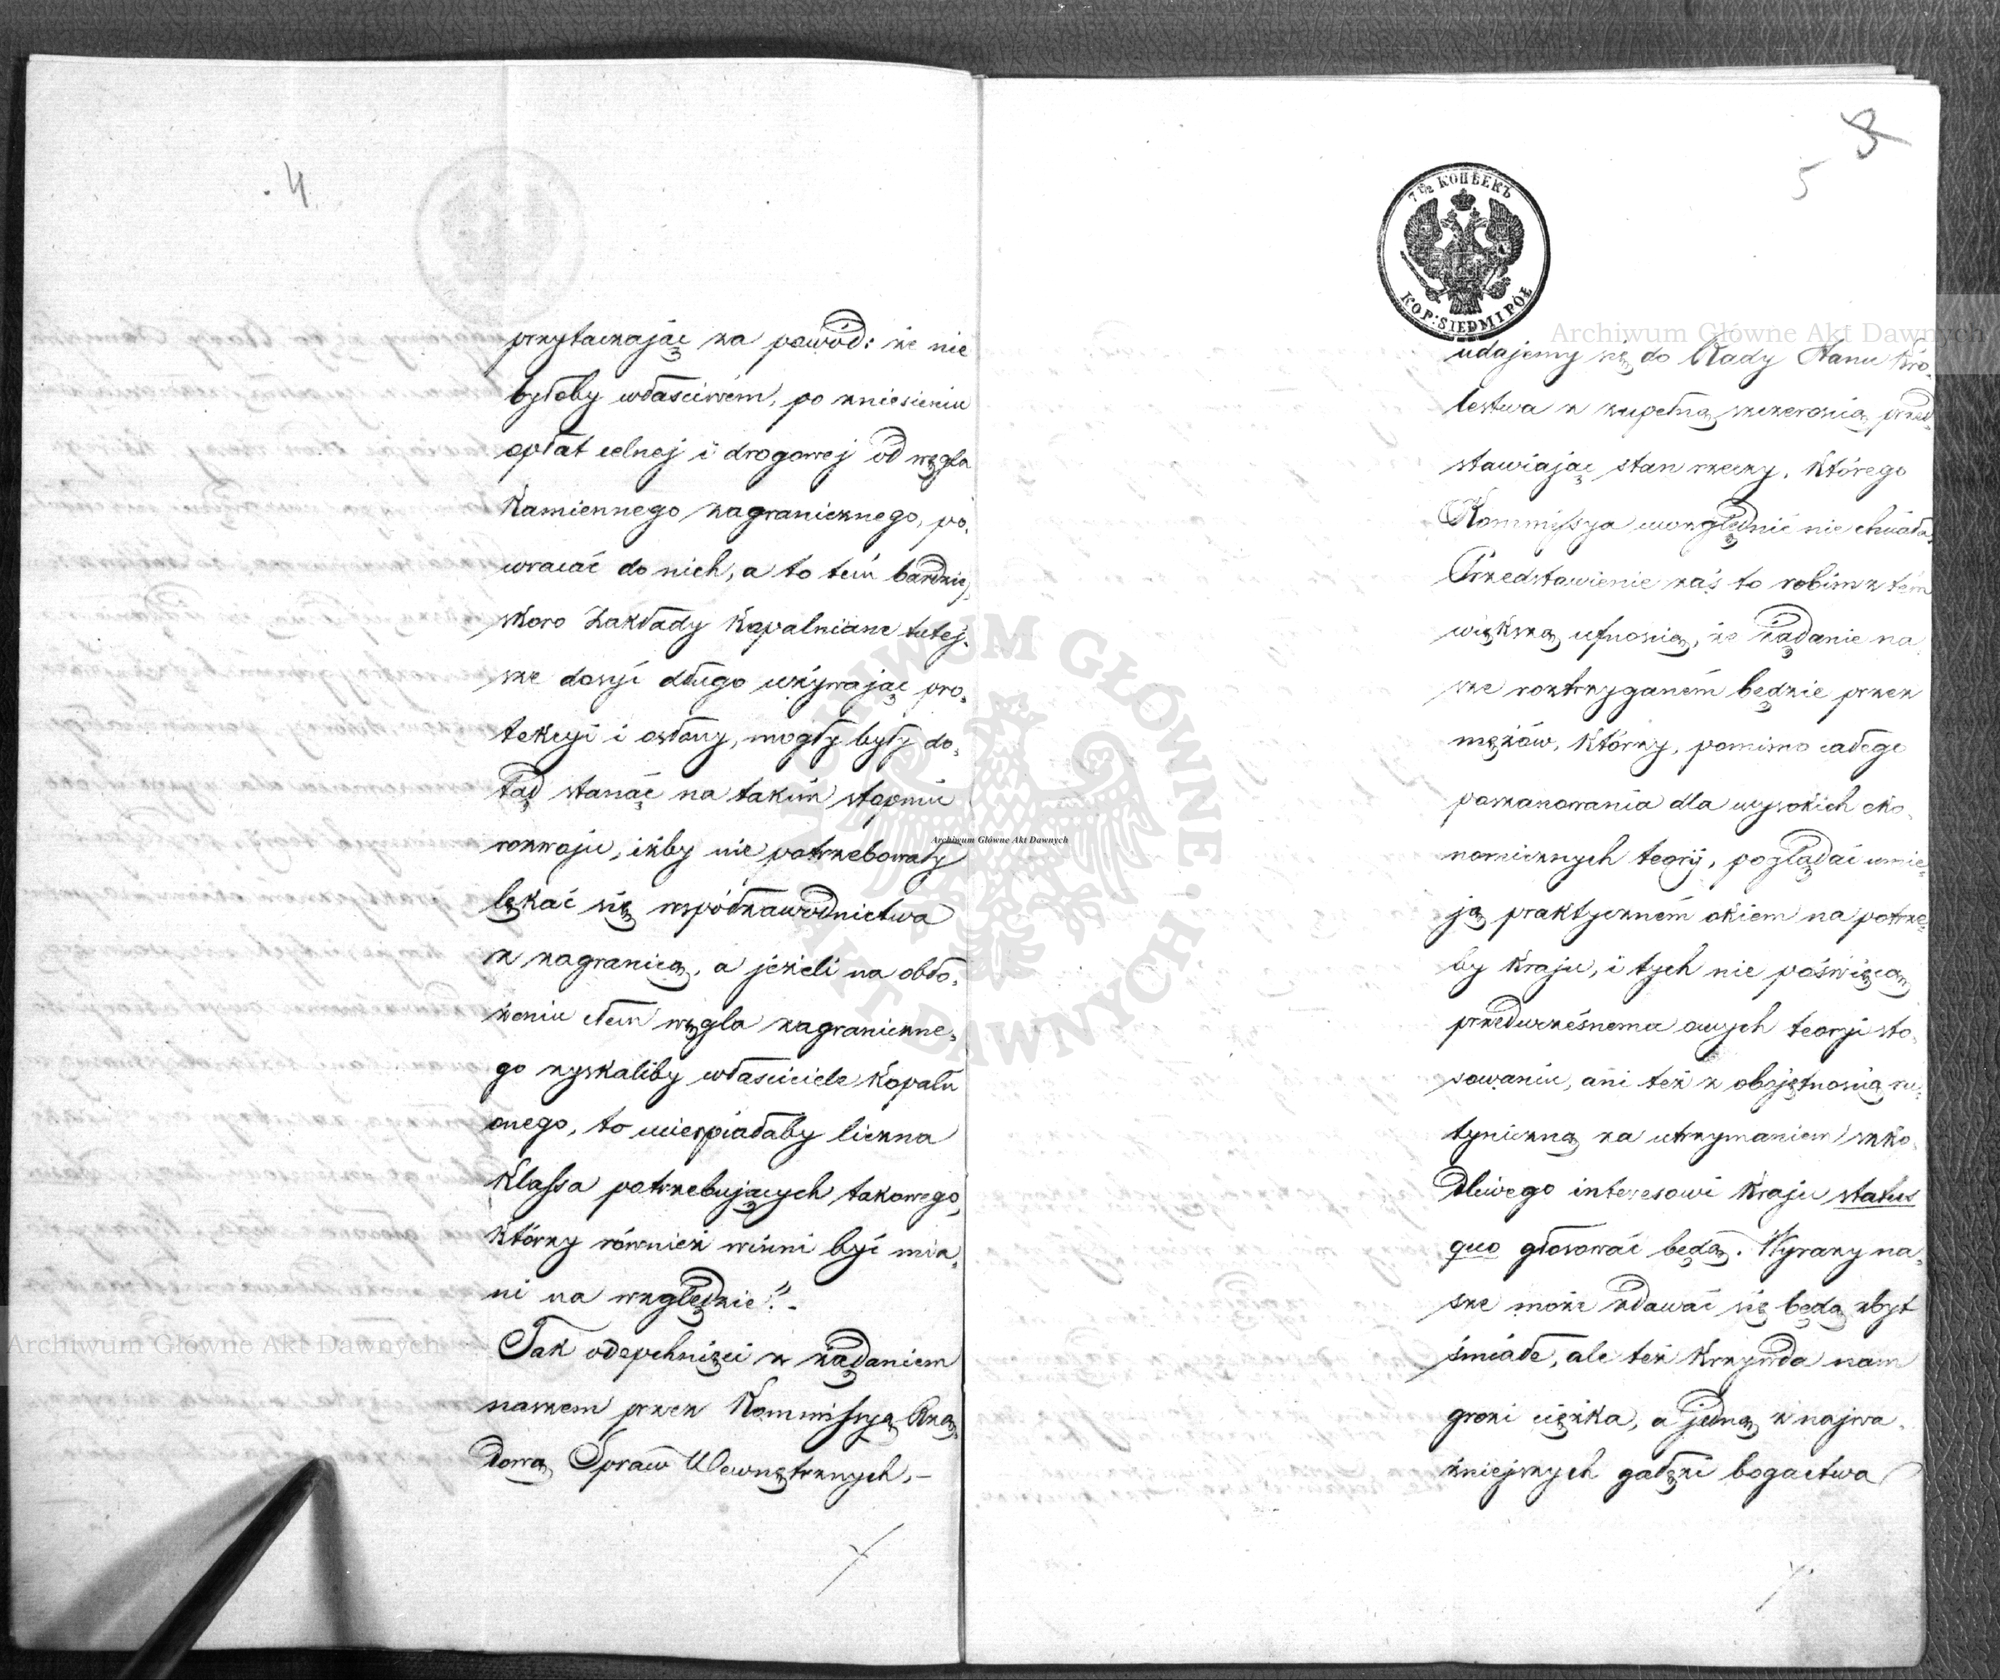 4
przytaczając za powód: że nie
byłoby właściwém, po zniesieniu
opłat celnej i drogowej od węgla
kamiennego zagranicznego, po-
wracać do nich, a to tém bardziej,
skoro Zakłady Kopalniane tutej-
sze dosyć długo używając pro-
tekcyi i osłony, mogły były do-
tąd stanąć na takim stopniu
rozwoju, iżby nie potrzebowały
lękać się współzawodnictwa
z zagranicą, a jeżeli na obło-
żeniu cłem węgla zagraniczne-
go zyskaliby właściciele kopalń
onego, to ucierpiałaby liczna
klassa potrzebujących takowego,
którzy również winni być mia-
ni na względzie".-
Tak odepchnięci z żądaniem
naszem przez Kommissyą Rzą-
dową Spraw Wewnętrznych,-
5
7 1/2 КОПѢЕКЪ
KOP: SIEDM I PÓŁ
udajemy się do Rady Stanu Kró-
lestwa z zupełną szczerością przed-
stawiając stan rzeczy, którego
Kommissya uwzględnić nie chciała.
Przedstawienie zaś to robim z tém
większą ufnością, że żądanie na-
sze roztrzyganém będzie przez
mężów, którzy, pomimo całego
poszanowania dla wysokich eko-
nomicznych teoryj, poglądać umie-
ją praktyczném okiem na potrze-
by kraju, i tych nie poświęcą
przedwześnemu owych teoryi sto-
sowaniu, ani też z obojętnością ru-
tyniczną za utrzymaniem szko-
dliwego interesowi kraju status
quo głosować będą. Wyrazy na-
sze może zdawać się będą zbyt
śmiałe, ale też krzywda nam
grozi ciężka, a jedną z najwa-
żniejszych gałęzi bogactwa
Archiwum Główne Akt Dawnych
Archiwum Główne Akt Dawnych
Archiwum Główne Akt Dawnych
ARCHIWUM GŁÓWNE AKT DAWNYCH